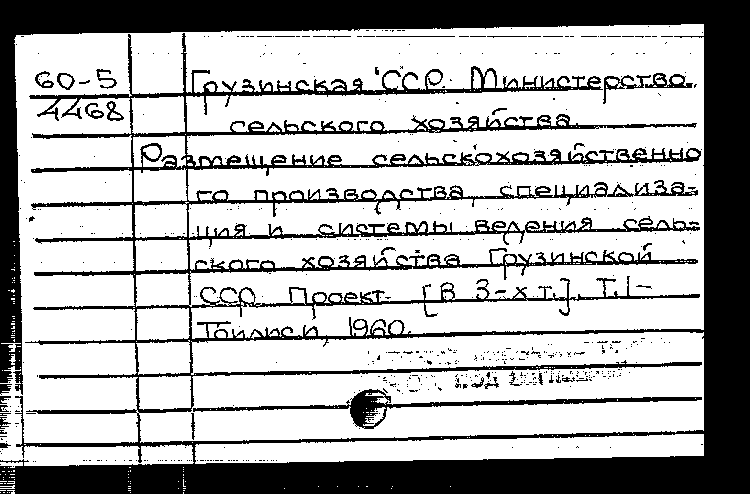 60-5
4468
Грузинская ССР. Министерство
сельского хозяйства.
Размещение сельскохозяйственно
го производства, специализа-
ция и системы ведения сель-
ского хозяйства Грузинской
ССР. Проект. [В 3-х т.]. Т.1-
Тбилиси, 1960.
под